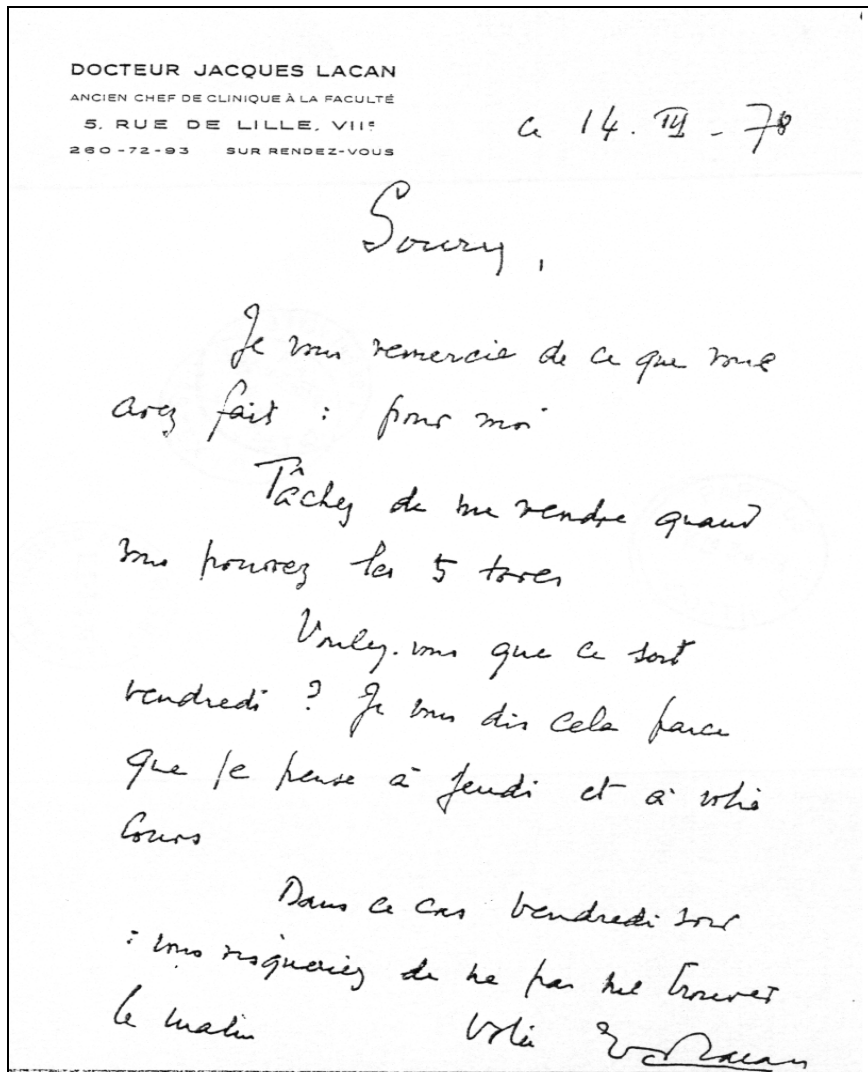 DOCTEUR JACQUES LACAN
ANCIEN CHEF DE CLINIQUE À LA FACULTÉ
5, RUE DE LILLE, VIIE
260-72-93 SUR RENDEZ-VOUS
ce 14. III - 78
Soury,
Je vous remercie de ce que vous
avez fait : pour moi
Tâchez de me rendre quand
vous pourrez les 5 tores
Voulez-vous que ce soit
vendredi ? Je vous dis cela parce
que je pense à jeudi et à votre
cours
Dans ce cas vendredi soir
: vous risqueriez de ne pas me trouver
le matin Votre J. Lacan